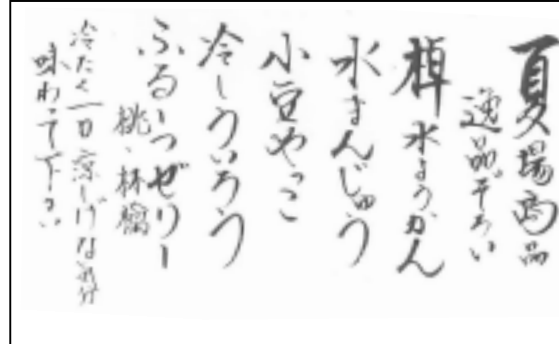 夏場商品
逸品ぞろい
棹水ようかん
水まんじゅう
小豆やっこ
冷しういろう
ふるーつぜりー
桃、林檎
冷たく一口涼しげな気分
味わって下さい